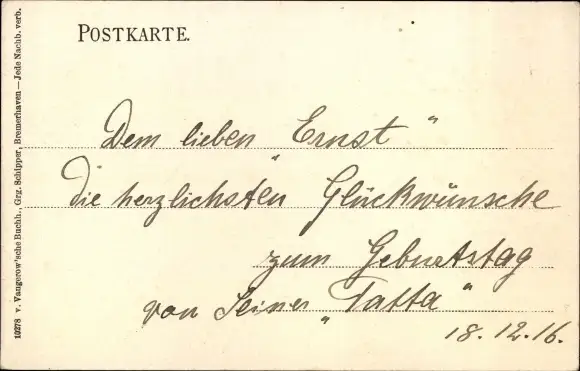 POSTKARTE.
Dem lieben „Ernst“
die herzlichsten Glückwünsche
zum Geburtstag
von Seiner „Tatta“
18.12.16.
10278 v. Vangerow'sche Buchh., Grg. Schipper, Bremerhaven — Jede Nachb. verb.